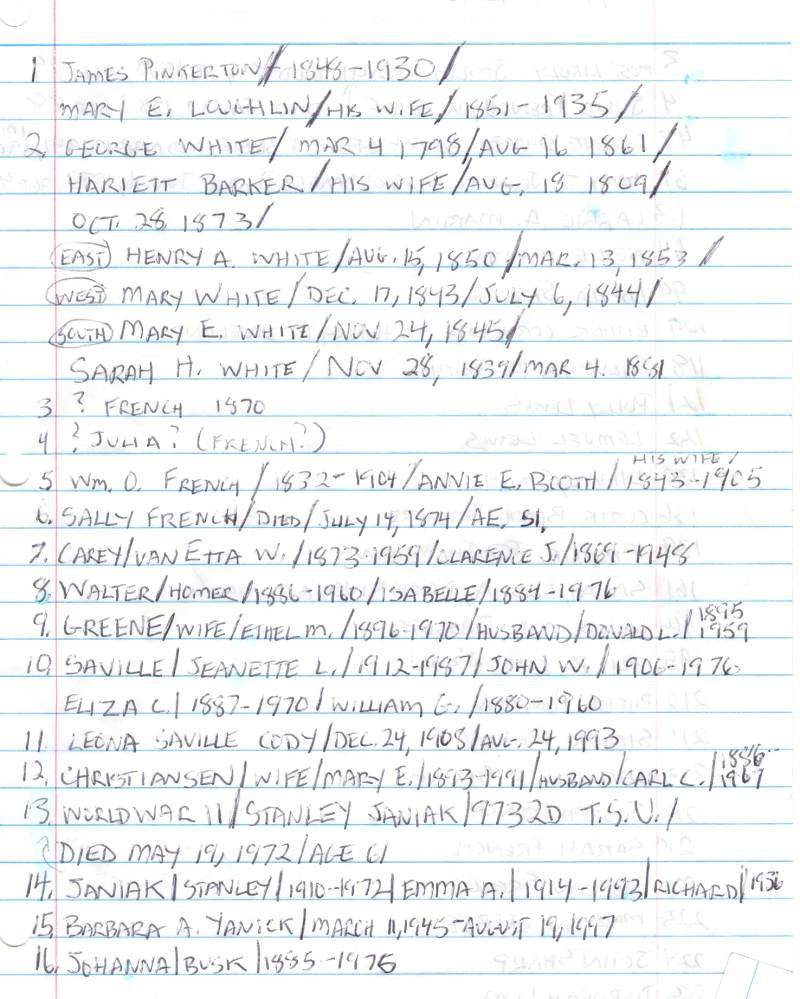 1 JAMES PINKERTON/ - 1848-1930/
MARY E. LOUGHLIN/HIS WIFE/1851-1935/
2 GEORGE WHITE/ MAR 4 1798/AUG 16 1861/
HARIETT BARKER/HIS WIFE/AUG. 18 1809/
OCT. 28, 1873/
(EAST) HENRY A. WHITE/AUG. 15, 1850/MAR. 13, 1853/
(WEST) MARY WHITE/DEC. 17, 1843/JULY 6, 1844/
(SOUTH) MARY E. WHITE/NOV 24, 1845/
SARAH H. WHITE/NOV 28, 1839/MAR 4. 1881
3 ? FRENCH 1870
4 ? JULIA? (FRENCH?)
HIS WIFE/
5 WM. O. FRENCH/1832-1904/ANNIE E. BOOTH/1843-1905
6. SALLY FRENCH/DIED/JULY 14, 1874/AE, 51,
7. CAREY/VAN ETTA W./1873-1959/CLARENCE J./1869-1948
8. WALTER/HOMER/1886-1960/ISABELLE/1884-1976
9. GREENE/WIFE/ETHEL M./1896-1970/HUSBAND/DONALD L./1895 1959
10. SAVILLE/JEANETTE L./1912-1987/JOHN W./1906-1976
ELIZA C./1887-1970/WILLIAM G./1880-1960
11. LEONA SAVILLE CODY/DEC. 24, 1908/AUG. 24, 1993
12. CHRISTIANSEN/WIFE/MARY E./1893-1991/HUSBAND/CARL C./1886-1967
13. WORLD WAR II/STANLEY JANIAK/9732D T.S.U./
DIED MAY 19, 1972/AGE 61
14. JANIAK/STANLEY/1910-1972/EMMA A./1914-1993/RICHARD/1936
15. BARBARA A. YANICK/MARCH 11, 1945-AUGUST 19, 1997
16. JOHANNA/BUSK/1885-1975